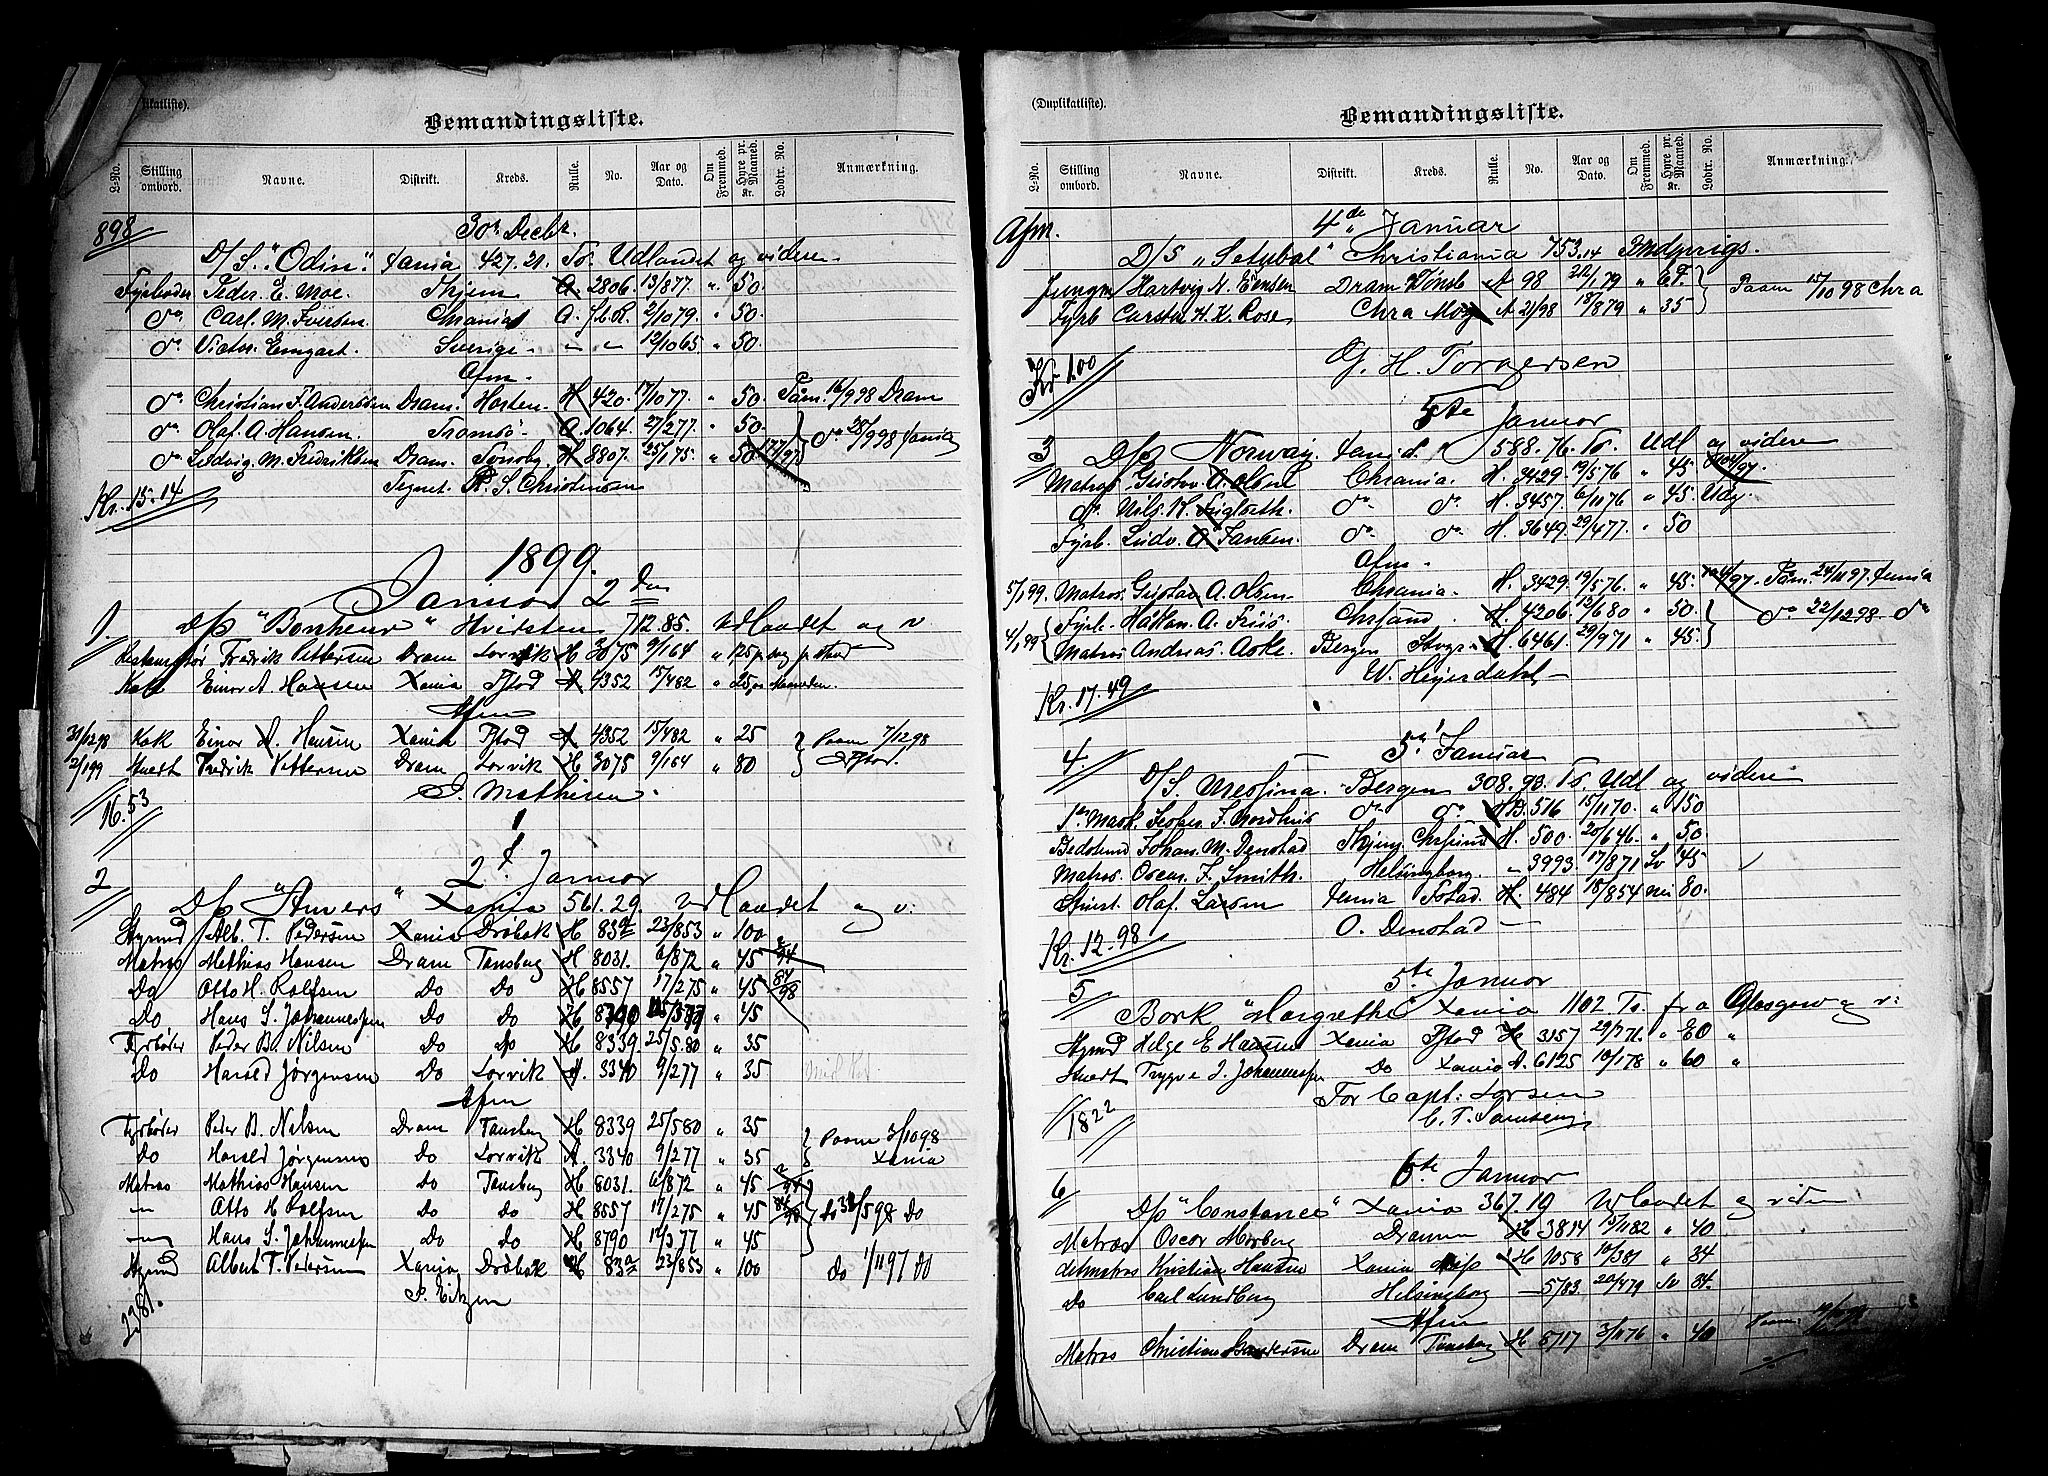 (Duplikatliste).
Bemandingsliste.
L-No. Stilling ombord. Navne. Distrikt. Kreds. Rulle. No. Aar og Dato. Om Fremmed. Hyre pr. Maaned. Kr. Lodtr. No. Anmærkning.
898 30 Decbr.
D/S. "Odin" Xania 427.21. To. Udlandet og videre
Fyrbøder Peder. E. Moe. Thjem A. 2806. 13/877. " 50.
do Carl. M. Iversen. Chrania A. 2/1079. " 50.
do Victor. Sverige - " - " 12/1065 " 50.
Afm.
do Christian F. Anderssen Dram. Horten. H 420. 17/1077. " 50. Paam. 16/998 Dram
do Olaf. A. Hansen. Tromsö. A. 1064. 27/277. " 50.
do Ludvig. M. Fredriksen Dram. Tönsbg H 8807. 25/175. " 50 177/97 do 28/998 Xania
Kr. 15.14 Tegnet. P. S. Christensen
1899.
Januar 2den
1. D/S "Bonheur" Hvidsten 712.85. Udlandet og v
Fredrik Pettersen Dram Lorvik H 3075 9/164 " 125 p dag
Kok Einar A Hansen Xania Fstad A 4352 15/482 " 25 pr Maaneden.
Afm
31/1298 Kok Einar A. Hansen Xania Fstad A 4352 15/482 " 25 Paam 7/1298
2/199 Stuert Fredrik Pettersen Dram Lorvik H 3075 9/164 " 80 Fstad.
16.53 J. Mathisen.
2 2. Januar
D/S "Anvers" Xania 561.29. Udlandet og v:
Styrmd Alb. T. Pedersen Xania Drøbak H 83a 23/853 " 100
Matros Mathias Hansen Dram Tønsberg H 8031. 6/872 " 45
Do Otto H. Rolfsen Do Do H 8557 17/275 " 45 84/98
Do Hans S. Johannessen Do Do H 8790 " 45
Fyrbøder Peder B. Nilsen Do Do H 8339 25/580 " 35
Do Harald Jørgensen Do Lorvik A. 3340 9/277 " 35
Afm
Fyrbøder Peder B. Nilsen Dram Tønsberg H 8339 25/580 " 35 Paam 3/1098
Do Harald Jørgensen Do Lorvik A. 3340 9/277 " 35 Xania
Matros Mathias Hansen Do Tønsberg H 8031. 6/872 " 45
" Otto H Rolfsen Do Do H 8557 17/275 " 45 Do 31/598 Do
" Hans S. Johannessen Do Do H 8790 " 45
Styrmd Albert T. Pedersen Xania Drøbak H 83a 23/853 " 100 Do 1/1197 Do
2981. P. Eitzen
(Duplikatliste).
Bemandingsliste.
L-No. Stilling ombord. Navne. Distrikt. Kreds. Rulle. No. Aar og Dato. Om Fremmed. Hyre pr. Maaned. Kr. Lodtr. No. Anmærkning.
Afm. 4de Januar
D/S "Setubal" Christiania 753.14 Indenrigs.
Jungm Hartvig N. Dram A 98 22/179 " 67. Paam 15/1098 Chra
Fyrb Carsten H. K. Rose Chra A 21/98 18/879 " 35
Kr 1.00 G. H. Torgersen
5te Januar
3 D/S Norway. 588.76. To. Udl og videre
Matros Gustav. A. Olsen Chrania. H. 3429 19/576 " 45
do Nils. H. Fuglseth. do do H. 3457 6/1176 " 45. Udg.
Fyrb. Ludv. A. Jansen. do do H. 3649. 29/477. " 50
Afm.
5/199. Matros. Gustav A. Olsen. Chrania. H. 3429 19/576. " 45. Paam. 24/1197. Xania
4/199 Fyrb. Håkon. A. Friis. Chrsand. H. 4206 12/680 " 50. do 22/1298. do
Matros Andreas. Aske. Bergen Stvgr H. 6461. 29/971 " 45.
Kr. 17.49 W. Heyerdahl
4. 5te Januar
D/S. Messina. Bergen 308.90. To. Udl og videre
1ste Mask. Jesper. F. Nordhus do do B. 516 15/1170. " 150
Bedstmd Johan. M. Denstad Thjem. Chrsund H. 500. 20/646. " 50.
Matros. Oscar. F. Smith. Helsingborg. - 3993. 17/871 Sv 45
Stuert. Olaf. Larsen Xania Fstad. H. 484 18/854 nei 80.
Kr. 12.98 O. Denstad
5 5te Januar
Bark "Margrethe" Xania 1102 Ts. fra Glasgow og v:
Styrmd Helge E Hansen Xania Fstad H 3157 29/776. " 80 "
Stuert Trygve J. Johannessen Do Xania A. 6125 10/178 " 60 "
1822 For Capt. Larsen
C. T. Samsen
6 6te Januar
D/S "Constance" Xania 367.19 Udlandet og viden
Matros Oscar Morberg Dramm H 3814 15/1182 " 40
Letmatros Kristian Hansen Xania H 1058 10/381 " 34
Do Carl Lundberg Helsingborg - 5/83. 20/479 Sv 34.
Afm
Matros Christian Andersen Dram Tønsberg H 8717 3/1176 " 40 Paam.